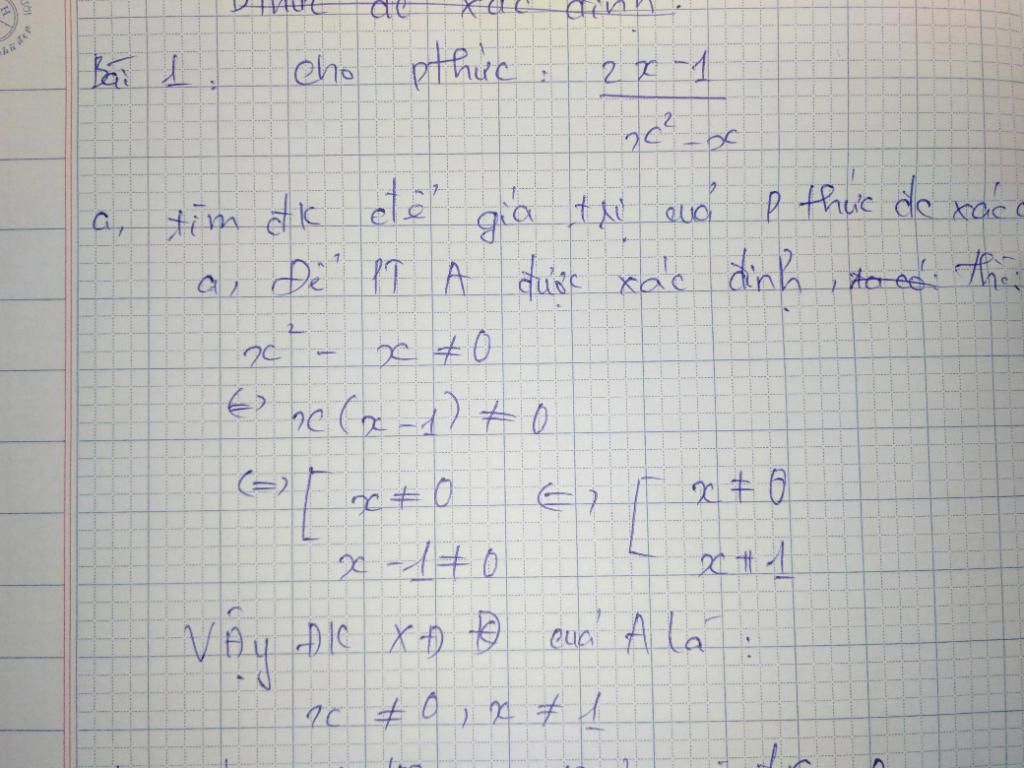 pthức đc xác định.
Bài 1: Cho pthức: 2x-1
x²-x
a, tìm đk để giá trị của p thức đc xác đ
a, Để PT A được xác định, thì:
x² - x ≠ 0
<=> x(x-1) ≠ 0
<=> [ x ≠ 0 <=> [ x ≠ 0
x - 1 ≠ 0 x ≠ 1
Vậy ĐK XĐ của A là:
x ≠ 0, x ≠ 1